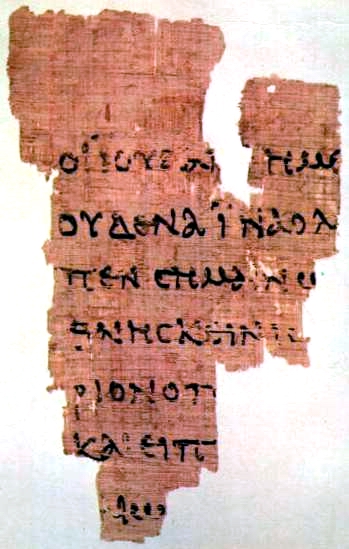 ΟΙΪΟΥΔΑΙ ΗΜΕ
ΟΥΔΕΝΑΪΝΑΟΛ
ΠΕΝϹΗΜΑΙΝΩ
ΘΝΗϹΚΕΙΝΙ
ΡΙΟΝΟΠ
ΚΑΙΕΙΠ